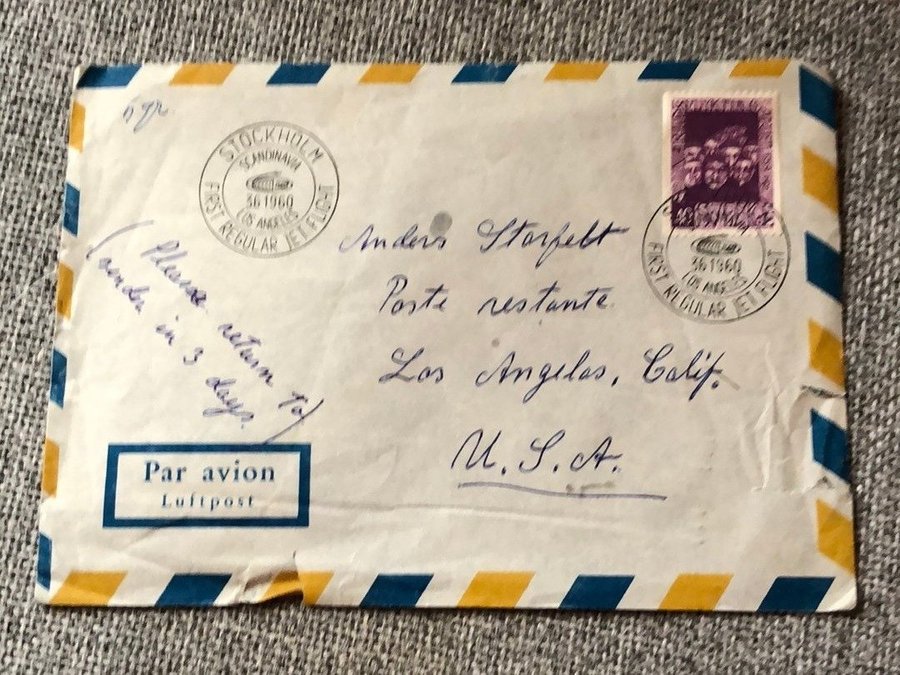 5 gr
STOCKHOLM
SCANDINAVIA
3 6 1960
LOS ANGELES
FIRST REGULAR JET FLIGHT
3 6 1960
LOS ANGELES
FIRST REGULAR JET FLIGHT
Anders Starfelt
Poste restante
Los Angelos, Calif.
U. S. A.
(Please return to
sender in 3 days.)
Par avion
Luftpost